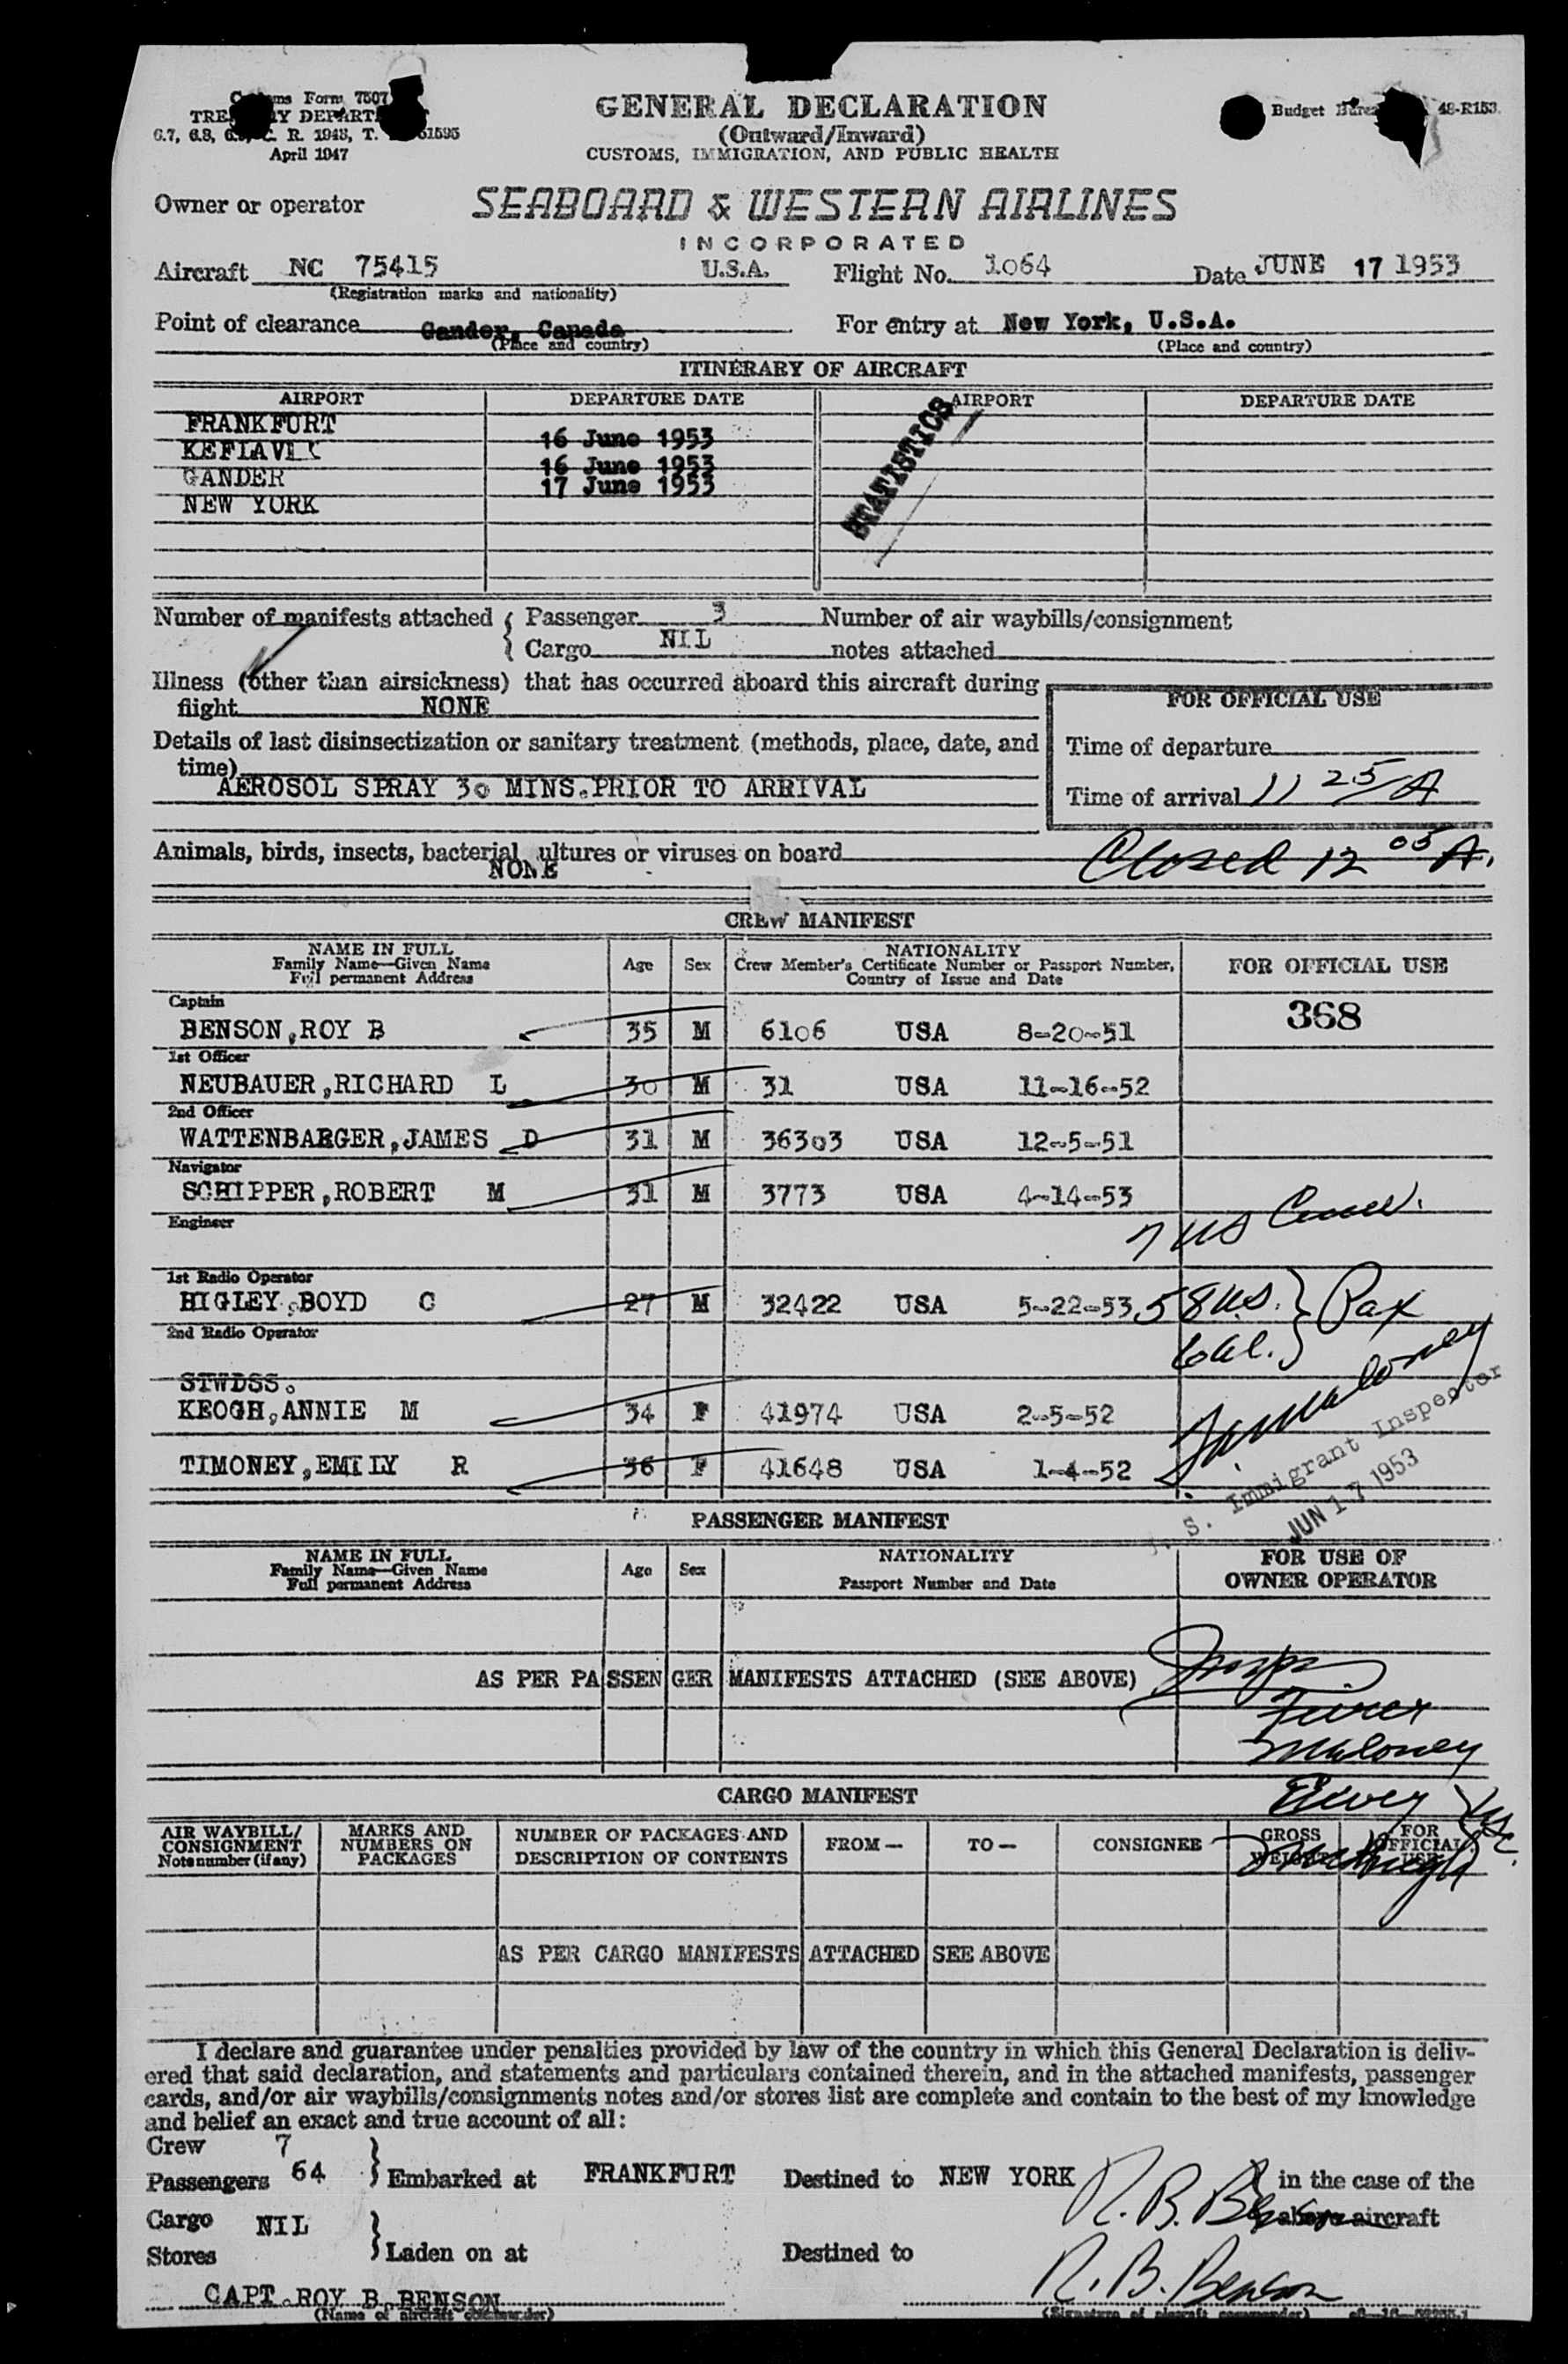 Customs Form 7507
TREASURY DEPARTMENT
April 1947
GENERAL DECLARATION
(Outward/Inward)
CUSTOMS, IMMIGRATION, AND PUBLIC HEALTH
Budget 48-R153.
Owner or operator SEABOARD & WESTERN AIRLINES
INCORPORATED
Aircraft NC 75415 U.S.A. Flight No. 1064 Date JUNE 17 1953
(Registration marks and nationality)
Point of clearance Gander, Canada For entry at New York, U.S.A.
(Place and country) (Place and country)
ITINERARY OF AIRCRAFT
AIRPORT DEPARTURE DATE AIRPORT DEPARTURE DATE
FRANKFURT 16 June 1953
KEFLAVIK 16 June 1953
GANDER 17 June 1953
NEW YORK
STATISTICS
Number of manifests attached { Passenger 3 Number of air waybills/consignment
Cargo NIL notes attached
Illness (other than airsickness) that has occurred aboard this aircraft during
flight NONE
FOR OFFICIAL USE
Details of last disinsectization or sanitary treatment (methods, place, date, and
time)
AEROSOL SPRAY 30 MINS. PRIOR TO ARRIVAL
Time of departure
Time of arrival 11 25/A
Animals, birds, insects, bacterial cultures or viruses on board
NONE
Closed 12 05 A.
CREW MANIFEST
NAME IN FULL Age Sex NATIONALITY FOR OFFICIAL USE
Family Name—Given Name Crew Member's Certificate Number or Passport Number,
Full permanent Address Country of Issue and Date
368
Captain
BENSON, ROY B 35 M 6106 USA 8-20-51
1st Officer
NEUBAUER, RICHARD L 30 M 31 USA 11-16-52
2nd Officer
WATTENBARGER, JAMES D 31 M 36303 USA 12-5-51
Navigator
SCHIPPER, ROBERT M 31 M 3773 USA 4-14-53
Engineer
7 US Crew.
1st Radio Operator
HIGLEY, BOYD C 27 M 32422 USA 5-22-53
58 U.S. } Pax
6 al.
2nd Radio Operator
STWDSS.
KEOGH, ANNIE M 34 F 41974 USA 2-5-52
TIMONEY, EMILY R 36 F 41648 USA 1-4-52
Maloney
U. S. Immigrant Inspector
JUN 17 1953
PASSENGER MANIFEST
NAME IN FULL Age Sex NATIONALITY FOR USE OF
Family Name—Given Name Passport Number and Date OWNER OPERATOR
Full permanent Address
AS PER PASSENGER MANIFESTS ATTACHED (SEE ABOVE)
Insps.
Maloney
CARGO MANIFEST
AIR WAYBILL/ MARKS AND NUMBER OF PACKAGES AND FROM— TO— CONSIGNEE GROSS FOR
CONSIGNMENT NUMBERS ON DESCRIPTION OF CONTENTS WEIGHT OFFICIAL
Note number (if any) PACKAGES USE
AS PER CARGO MANIFESTS ATTACHED SEE ABOVE
I declare and guarantee under penalties provided by law of the country in which this General Declaration is deliv-
ered that said declaration, and statements and particulars contained therein, and in the attached manifests, passenger
cards, and/or air waybills/consignments notes and/or stores list are complete and contain to the best of my knowledge
and belief an exact and true account of all:
Crew 7
Passengers 64 } Embarked at FRANKFURT Destined to NEW YORK R. B. Benson in the case of the
above aircraft
Cargo NIL
Stores } Laden on at Destined to
CAPT. ROY B. BENSON R. B. Benson
(Name of aircraft commander) (Signature of aircraft commander)